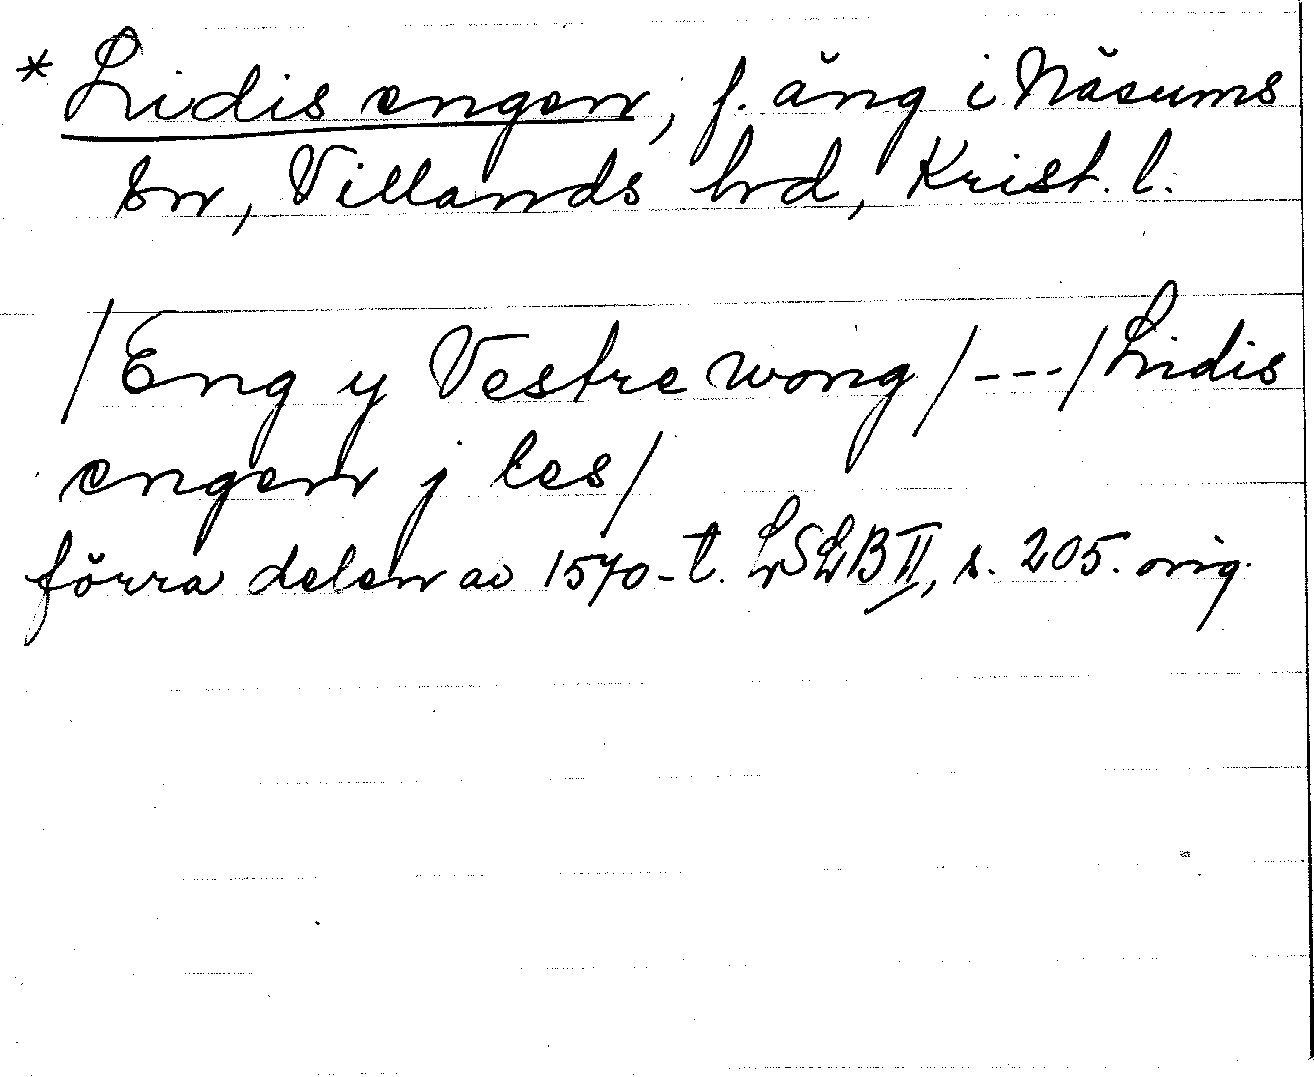 * Lidis engen, f. äng i Näsums
sn, Villands hrd, Krist. l.
/Eng y Vestre wong/---/Lidis
engen j les/
förra delen av 1570-t. LSLB II, s. 205. orig.